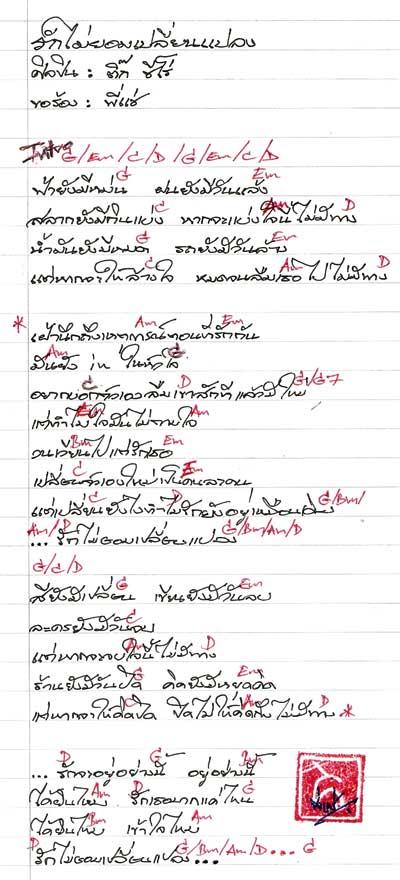 รักไม่ยอมเปลี่ยนแปลง
ศิลปิน : ติ๊ก ชีโร่
ขอร้อง : พี่แช่
Intro G/Em/C/D /G/Em/C/D
G Em
ฟ้ายังมีหม่น ฝนยังมีวันแล้ง
C Am D
สลากยังมีกินแบ่ง หากจะแบ่งใจนี้ไม่มีทาง
G Em
น้ำมันยังมีหมด รถยังมีวันล้าง
C Am D
แต่หากจะให้ล้างใจ หมดจนลืมเธอไปไม่มีทาง
Am Em
* เฝ้านึกถึงเหตุการณ์ตอนที่รักกัน
Am G
มันยัง in ในหัวใจ
C D G/G7
อยากบอกตัวเองลืมเขาสักทีแล้วมีใหม่
Em Am
แต่ทำไมใจมันไม่ตามใจ
Bm Em
วนเวียนไปแต่รักเธอ
C Em
เปลี่ยนตัวเองใหม่เป็นคนละคน
C D G/Bm/
แต่เปลี่ยนยังไงทำไมรักยังอยู่เหมือนเดิม
Am/D G/Bm/Am/D
... รักไม่ยอมเปลี่ยนแปลง
G/C/D
G Em
สียังมีเปลี่ยน เขียนยังมีวันลบ
C
ละครยังมีวันจบ
Am D
แต่หากจะจบใจนี้ไม่มีทาง
G Em
ร้านยังมีวันปิด คิดยังมีหยุดคิด
C Am D
แต่หากจะให้คิดปิด ปิดไม่ให้คิดถึงไม่มีทาง *
D G Bm
... รักจะอยู่อย่างนี้ อยู่อย่างนี้
Am D G
ได้ยินไหม รักเธอมากแค่ไหน
Bm Am
ได้ยินไหม เข้าใจไหม
D G/Bm/Am/D... G
รักไม่ยอมเปลี่ยนแปลง...